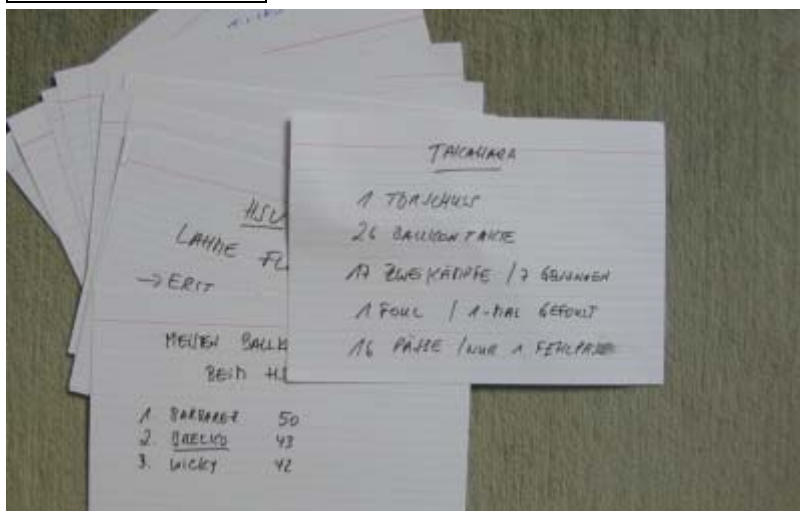 HSV
LAHME FL
→ ERST
MEISTEN BALLK
BEIM HS
1. BARBAREZ 50
2. 43
3. WICKY 42
TAKAHARA
1 TORSCHUSS
26 BALLKONTAKTE
17 ZWEIKÄMPFE / 7 GEWONNEN
1 FOUL / 1-MAL GEFOULT
16 PÄSSE / NUR 1 FEHLPASS